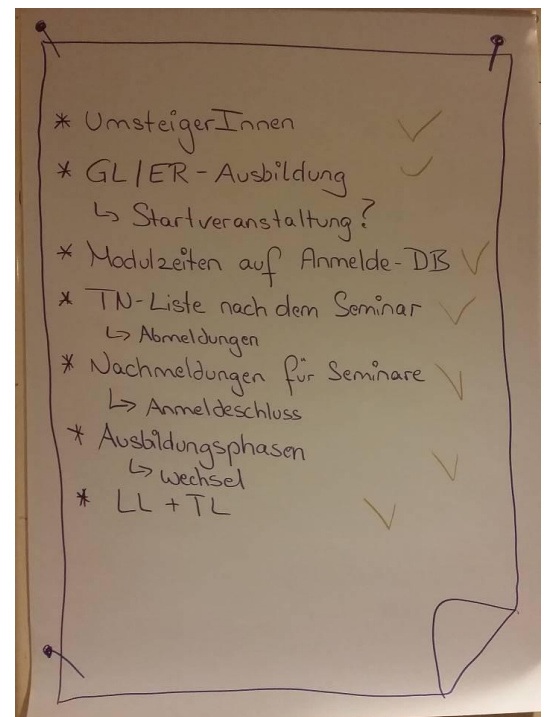 * UmsteigerInnen
* GL/ER - Ausbildung
↳ Startveranstaltung?
* Modulzeiten auf Anmelde-DB
* TN-Liste nach dem Seminar
↳ Abmeldungen
* Nachmeldungen für Seminare
↳ Anmeldeschluss
* Ausbildungsphasen
↳ Wechsel
* LL + TL